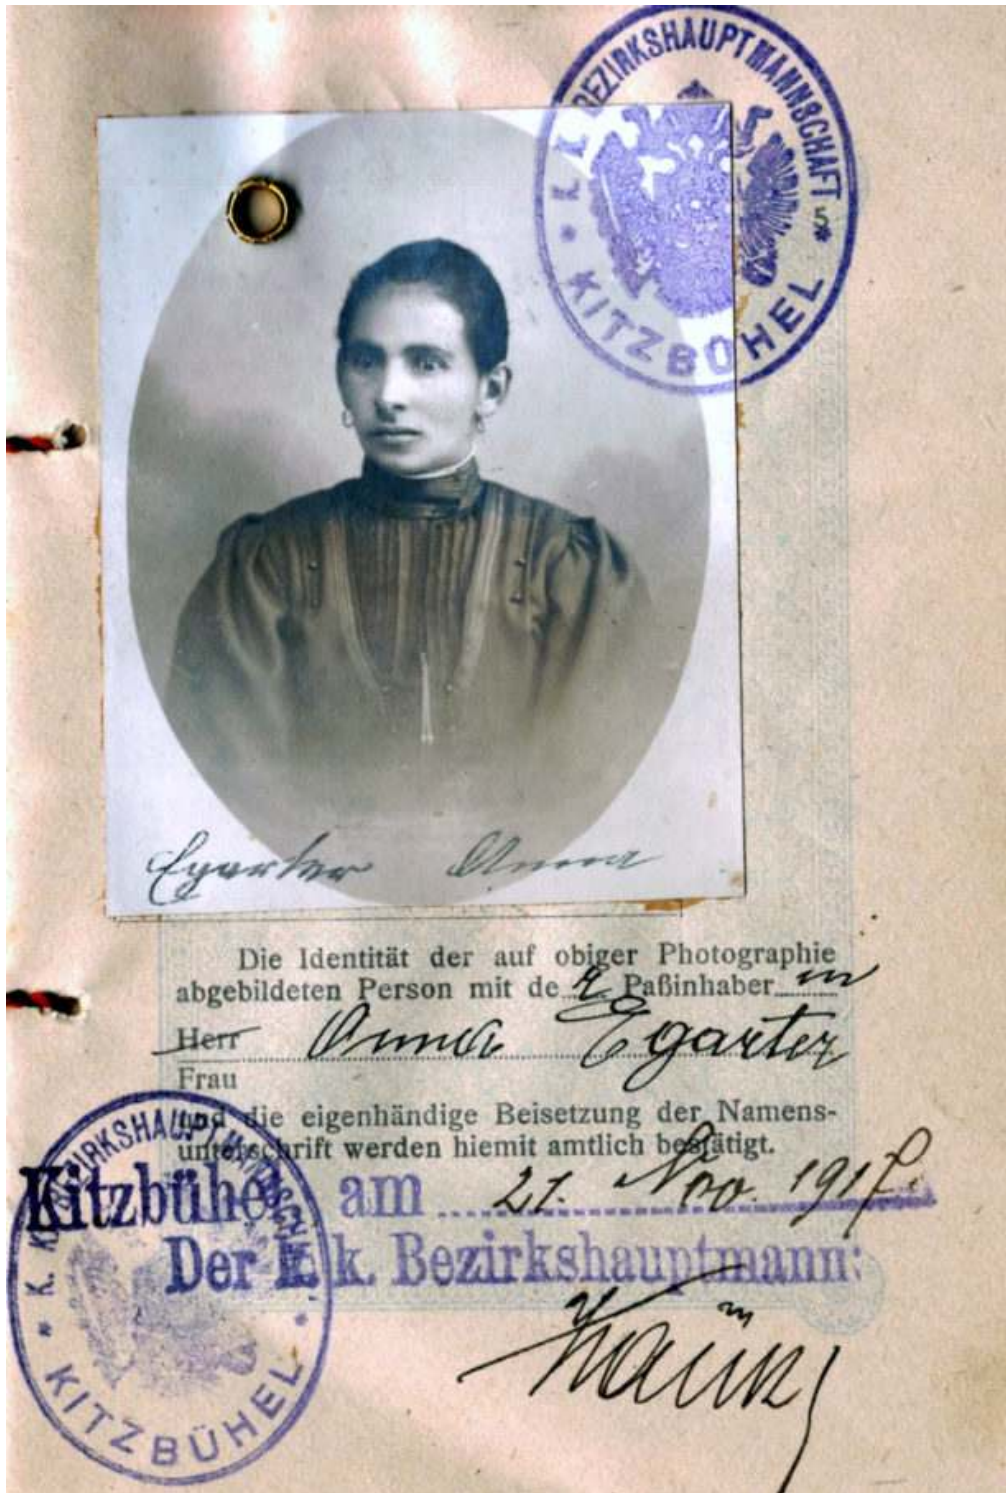 K. K. BEZIRKSHAUPTMANNSCHAFT 5
* KITZBÜHEL *
Egarter Anna
Die Identität der auf obiger Photographie
abgebildeten Person mit de r Paßinhaber in
Herr Anna Egarter
Frau
und die eigenhändige Beisetzung der Namens-
unterschrift werden hiemit amtlich bestätigt.
Kitzbühel am 21. Nov. 1917.
Der k. k. Bezirkshauptmann:
K. K. BEZIRKSHAUPTMANNSCHAFT
* KITZBÜHEL *